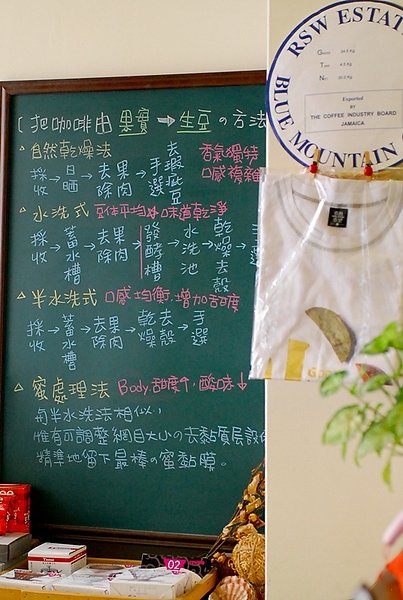 [把咖啡由果實→生豆の方法
△自然乾燥法
香氣獨特
口感複雜
採收→日晒→去果除肉→手選→去瑕疵豆
△水洗式 豆体平均☆味道乾淨
採收→蓄水槽→去果除肉→發酵槽→水洗池→乾燥→去殼→
△半水洗式 口感均衡,增加甜度
採收→蓄水槽→去果除肉→乾燥→去殼→手選
△蜜處理法 Body.甜度↑,酸味↓
与半水洗法相似,
惟有可調整網目大小の去黏質层設
精準地留下最棒の蜜黏膜。
RSW ESTATE
Exported
BY
THE COFFEE INDUSTRY BOARD
JAMAICA
BLUE MOUNTAIN
02